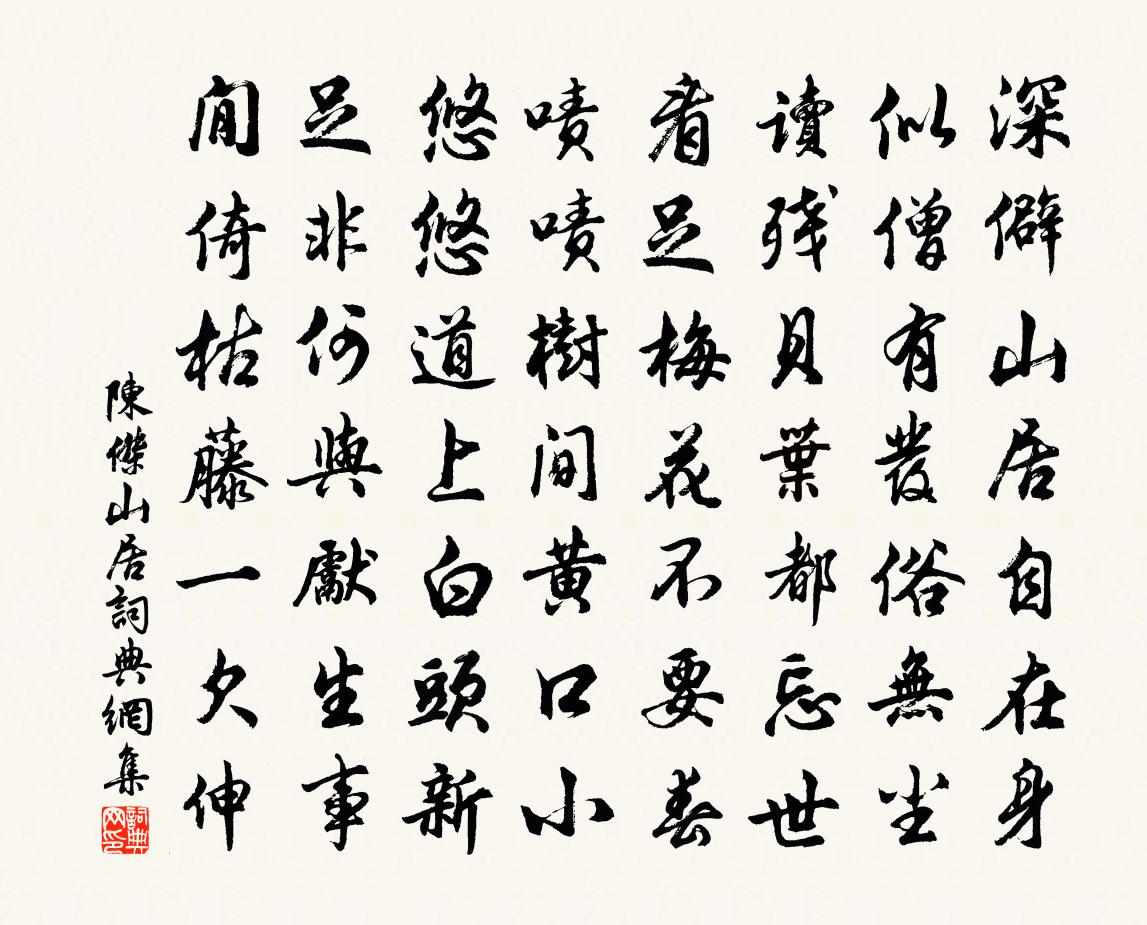 深僻山居自在身
似僧有髮俗無尘
讀殘貝葉都忘世
看足梅花不要春
嘖嘖樹间黄口小
悠悠道上白頭新
足非何與獻生事
閒倚枯藤一欠伸
陳傑山居詞典網集
詞典网印